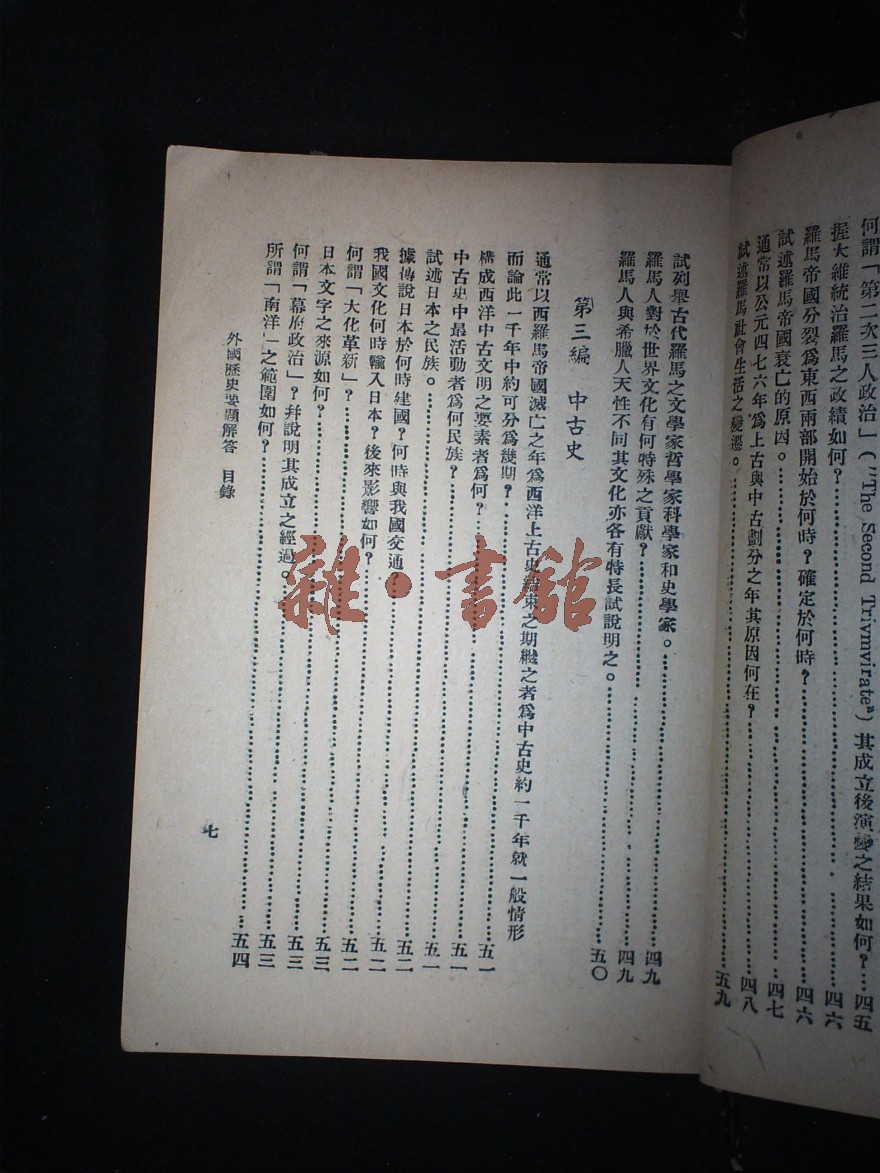 何謂「第二次三人政治」(''The Second Trivmvirate") 其成立後演變之結果如何?…四五
握大維統治羅馬之政績如何?…四六
羅馬帝國分裂爲東西兩部開始於何時?確定於何時?…四六
試述羅馬帝國衰亡的原因。…四七
通常以公元四七六年爲上古與中古劃分之年其原因何在?…四八
試述羅馬社會生活之變遷。…五九
試列舉古代羅馬之文學家哲學家科學家和史學家。…四九
羅馬人對於世界文化有何特殊之貢獻?…四九
羅馬人與希臘人天性不同其文化亦各有特長試說明之。…五〇
第三編 中古史
通常以西羅馬帝國滅亡之年爲西洋上古史結束之期繼之者爲中古史約一千年就一般情形
而論此一千年中約可分爲幾期?…五一
構成西洋中古文明之要素者爲何?…五一
中古史中最活動者爲何民族?…五一
試述日本之民族。…五二
據傳說日本於何時建國?何時與我國交通?…五二
我國文化何時輸入日本?後來影響如何?…五二
何謂「大化革新」?…五三
日本文字之來源如何?…五三
何謂「幕府政治」?幷說明其成立之經過。…五三
所謂「南洋」之範圍如何?…五四
外國歷史要題解答 目錄
七
雜·書館